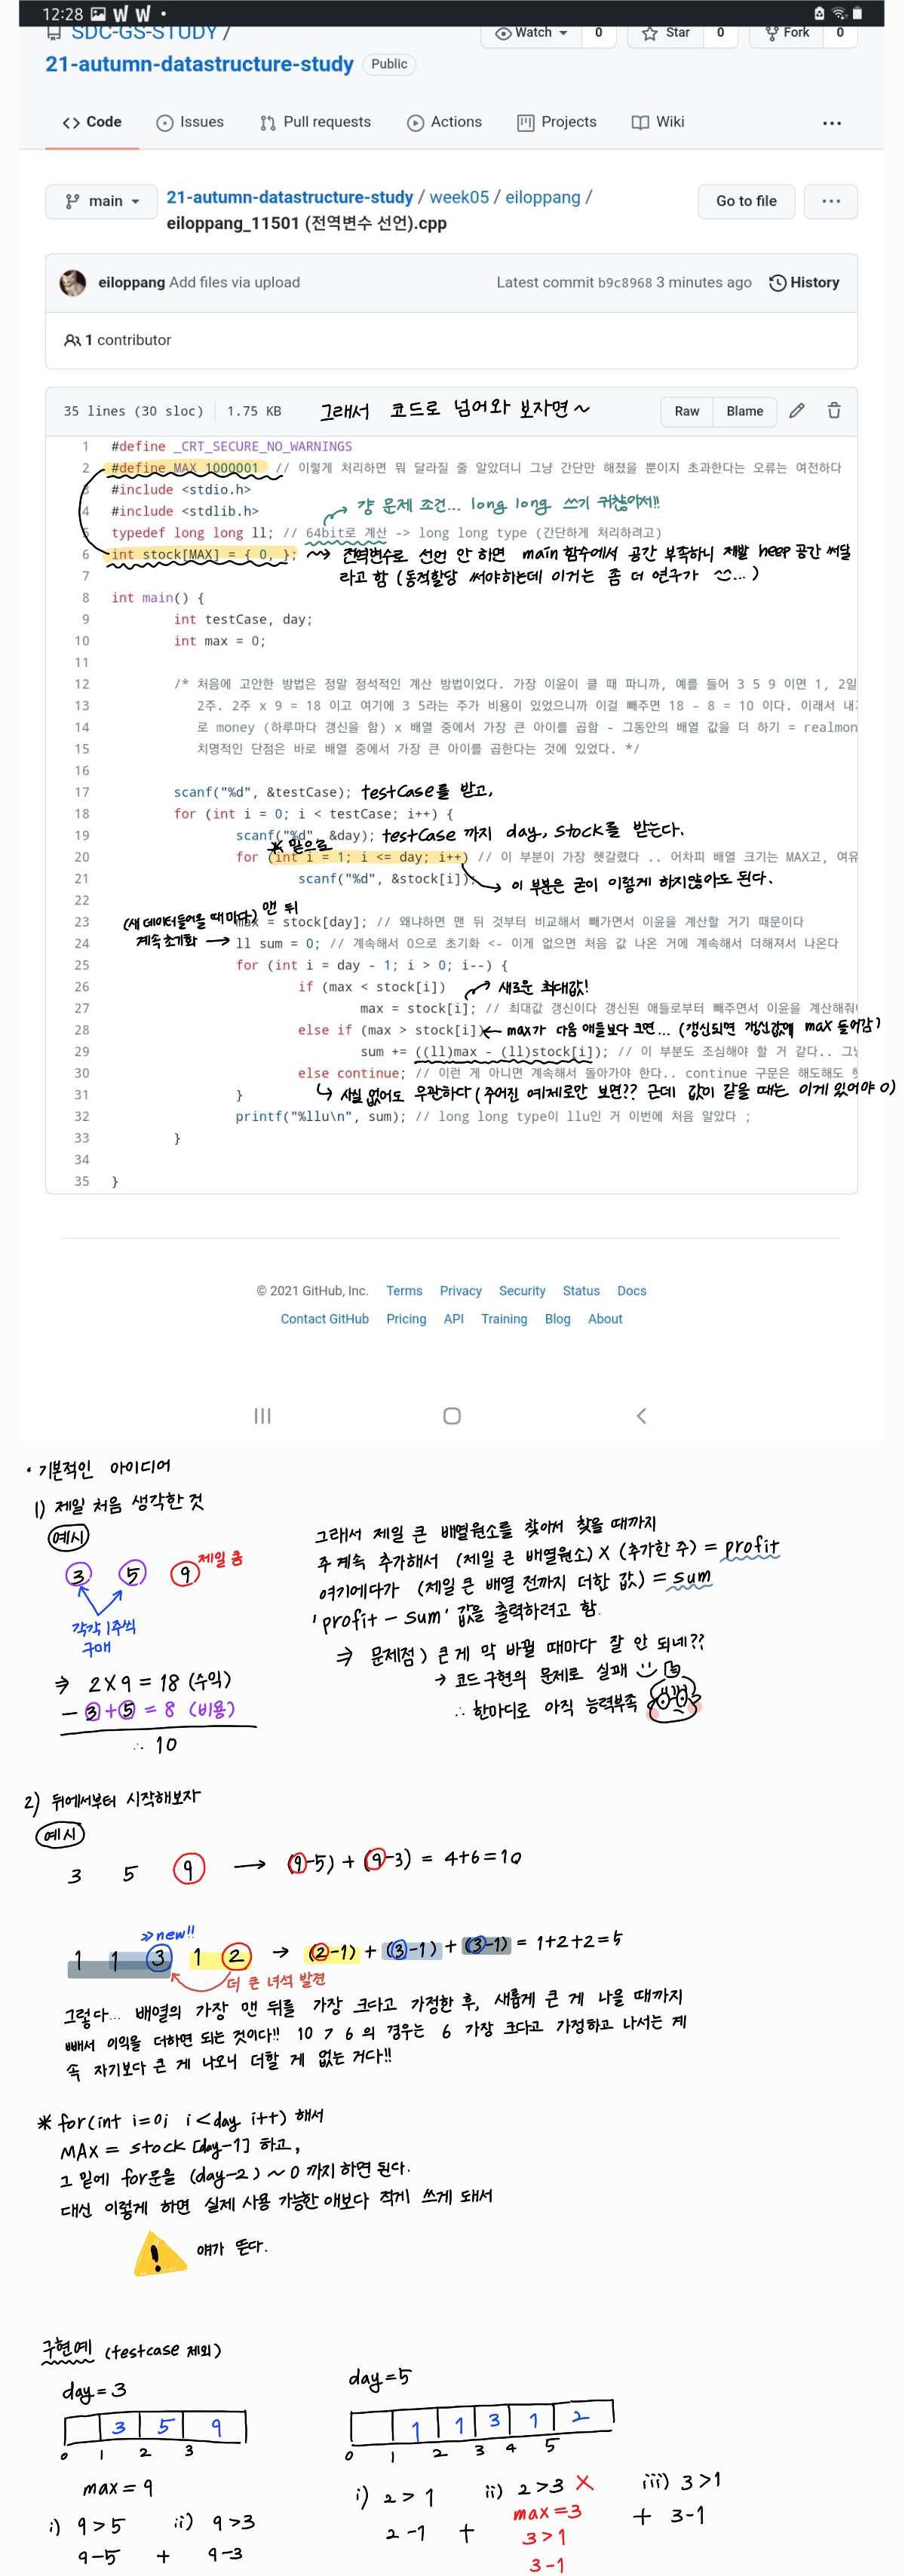 12:28 W W •
SDC-GS-STUDY /
Watch 0 Star 0 Fork 0
21-autumn-datastructure-study Public
Code Issues Pull requests Actions Projects Wiki ...
main 21-autumn-datastructure-study / week05 / eiloppang / Go to file ...
eiloppang_11501 (전역변수 선언).cpp
eiloppang Add files via upload Latest commit b9c8968 3 minutes ago History
1 contributor
35 lines (30 sloc) 1.75 KB 그래서 코드로 넘어와 보자면~ Raw Blame
1 #define _CRT_SECURE_NO_WARNINGS
2 #define MAX 1000001 // 이렇게 처리하면 뭐 달라질 줄 알았더니 그냥 간단만 해졌을 뿐이지 초과한다는 오류는 여전하다
3 #include <stdio.h>
걍 문제 조건... long long 쓰기 귀찮아서!!
4 #include <stdlib.h>
5 typedef long long ll; // 64bit로 계산 -> long long type (간단하게 처리하려고)
6 int stock[MAX] = { 0, }; 전역변수로 선언 안 하면 main 함수에서 공간 부족하니 제발 heep 공간 써달
7 라고 함 (동적할당 써야하는데 이거는 좀 더 연구가 ^^...)
8 int main() {
9 int testCase, day;
10 int max = 0;
11
12 /* 처음에 고안한 방법은 정말 정석적인 계산 방법이었다. 가장 이윤이 클 때 파니까, 예를 들어 3 5 9 이면 1, 2일
13 2주. 2주 x 9 = 18 이고 여기에 3 5라는 주가 비용이 있었으니까 이걸 빼주면 18 - 8 = 10 이다. 이래서 내가
14 로 money (하루마다 갱신을 함) x 배열 중에서 가장 큰 아이를 곱함 - 그동안의 배열 값을 더 하기 = realmon
15 치명적인 단점은 바로 배열 중에서 가장 큰 아이를 곱한다는 것에 있었다. */
16
17 scanf("%d", &testCase); testCase를 받고,
18 for (int i = 0; i < testCase; i++) {
19 scanf("%d", &day); testCase 까지 day, stock를 받는다.
* 밑으로
20 for (int i = 1; i <= day; i++) // 이 부분이 가장 헷갈렸다 .. 어차피 배열 크기는 MAX고, 여유
21 scanf("%d", &stock[i]); 이 부분은 굳이 이렇게 하지않아도 된다.
22
(새 데이터들어올 때마다) 맨 뒤
23 max = stock[day]; // 왜냐하면 맨 뒤 것부터 비교해서 빼가면서 이윤을 계산할 거기 때문이다
계속 초기화 →
24 ll sum = 0; // 계속해서 0으로 초기화 <- 이게 없으면 처음 값 나온 거에 계속해서 더해져서 나온다
25 for (int i = day - 1; i > 0; i--) {
26 if (max < stock[i]) 새로운 최대값!
27 max = stock[i]; // 최대값 갱신이다 갱신된 애들로부터 빼주면서 이윤을 계산해줘야
28 else if (max > stock[i]) ← max가 다음 애들보다 크면... (갱신되면 갱신값에 max 들어감)
29 sum += ((ll)max - (ll)stock[i]); // 이 부분도 조심해야 할 거 같다.. 그냥
30 else continue; // 이런 게 아니면 계속해서 돌아가야 한다.. continue 구문은 해도해도 헷
31 } 사실 없어도 무관하다 (주어진 예제로만 보면?? 근데 값이 같을 때는 이게 있어야 0)
32 printf("%llu\n", sum); // long long type이 llu인 거 이번에 처음 알았다 ;
33 }
34
35 }
© 2021 GitHub, Inc. Terms Privacy Security Status Docs
Contact GitHub Pricing API Training Blog About
• 기본적인 아이디어
1) 제일 처음 생각한 것
예시
3 5 9 제일 큼
각각 1주씩
구매
⇒ 2×9 = 18 (수익)
- 3+5 = 8 (비용)
∴ 10
그래서 제일 큰 배열원소를 찾아서 찾을 때까지
주 계속 추가해서 (제일 큰 배열원소) X (추가한 주) = profit
여기에다가 (제일 큰 배열 전까지 더한 값) = sum
'profit - sum' 값을 출력하려고 함.
⇒ 문제점) 큰게 막 바뀔 때마다 잘 안 되네??
→ 코드 구현의 문제로 실패
∴ 한마디로 아직 능력부족
2) 뒤에서부터 시작해보자
예시
3 5 9 → (9-5) + (9-3) = 4+6=10
≫new!!
1 1 3 1 2 → (2-1) + (3-1) + (3-1) = 1+2+2=5
더 큰 녀석 발견
그렇다... 배열의 가장 맨 뒤를 가장 크다고 가정한 후, 새롭게 큰 게 나올 때까지
빼서 이익을 더하면 되는 것이다!! 10 7 6 의 경우는 6 가장 크다고 가정하고 나서는 계
속 자기보다 큰 게 나오니 더할 게 없는 거다!!
* for(int i=0; i<day i++) 해서
MAX = stock [day-1] 하고,
그 밑에 for문을 (day-2) ~ 0 까지 하면 된다.
대신 이렇게 하면 실제 사용 가능한 애보다 적게 쓰게 돼서
! 얘가 뜬다.
구현예 (testcase 제외)
day = 3
3 5 9
0 1 2 3
max = 9
i) 9 > 5 ii) 9 > 3
9-5 + 9-3
day = 5
1 1 3 1 2
0 1 2 3 4 5
i) 2 > 1 ii) 2 > 3 X iii) 3 > 1
2-1 + max = 3 + 3-1
3 > 1
3-1